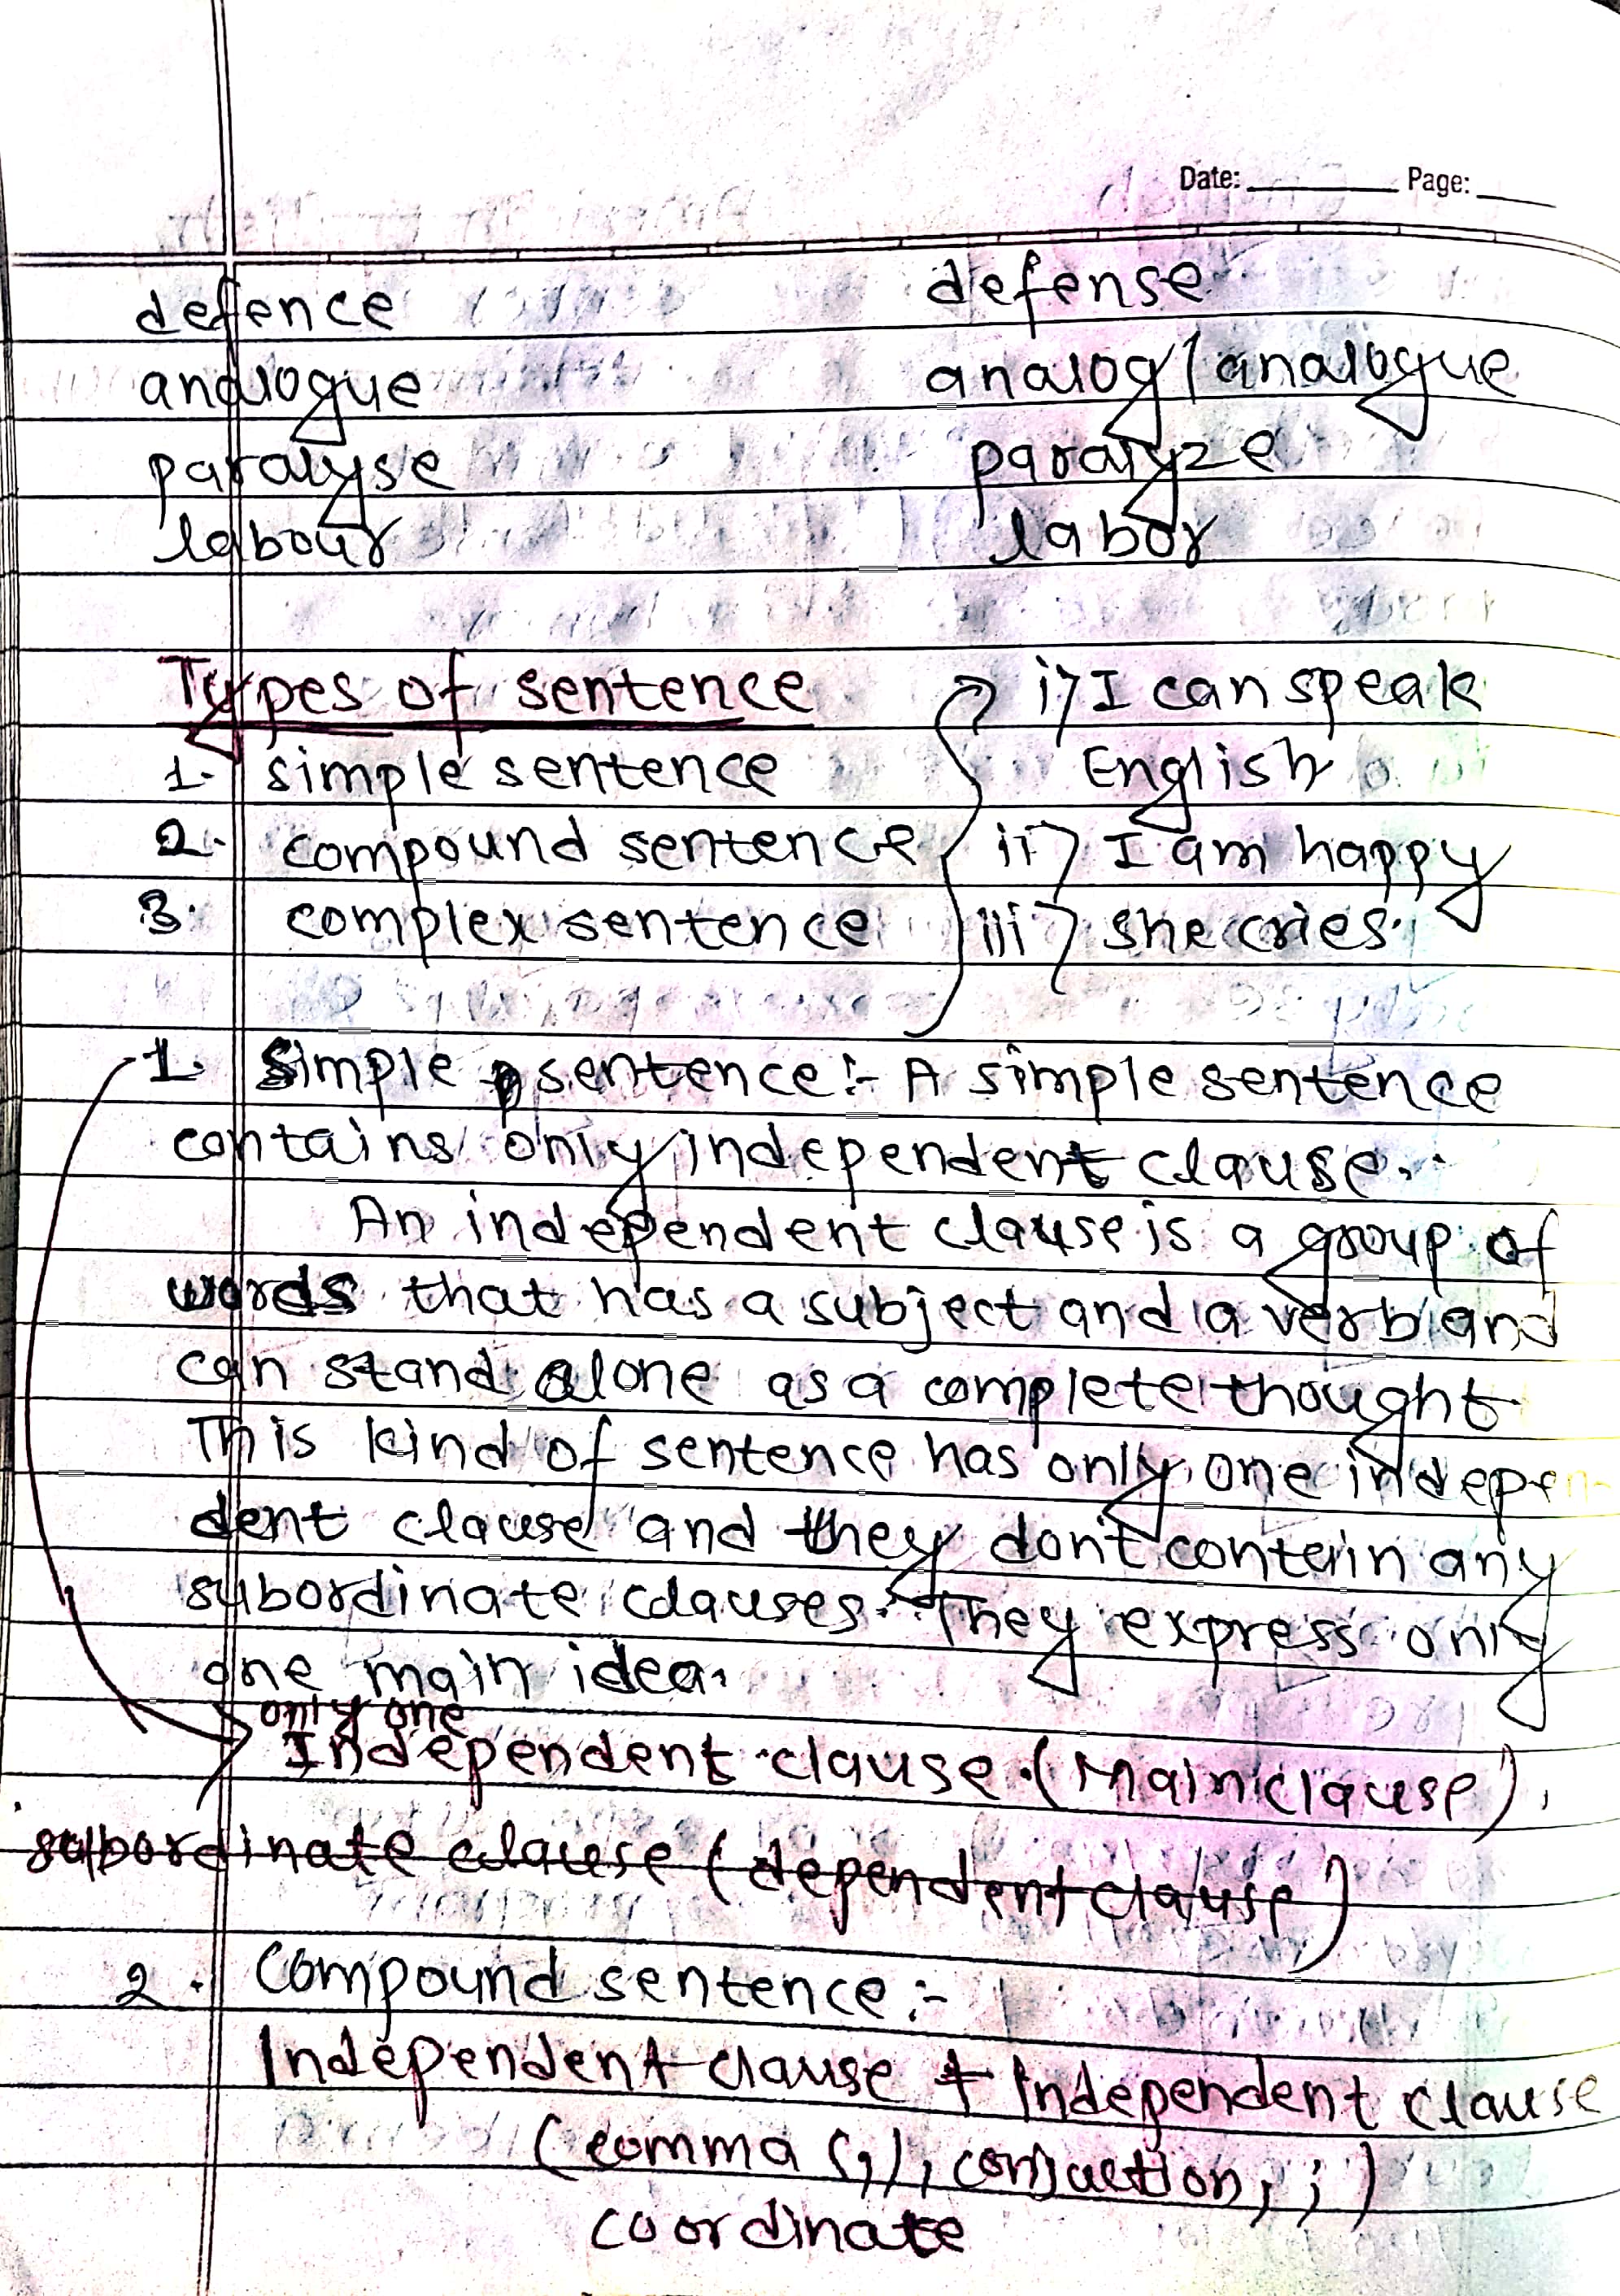 Date: Page:
defence defense
analogue analog/analogue
paralyse paralyze
labour labor
Types of sentence i) I can speak
1. simple sentence English
2. compound sentence ii) I am happy
3. complex sentence iii) she cries.
1. Simple sentence:- A simple sentence
contains only independent clause.
An independent clause is a group of
words that has a subject and a verb and
can stand alone as a complete thought.
This kind of sentence has only one indepen-
dent clause and they don't contain any
subordinate clauses. They express only
one main idea.
only one
Independent clause. (Main clause)
subordinate clause (dependent clause)
2. Compound sentence:-
Independent clause + Independent clause
(comma (,), conjuction, ; )
coordinate